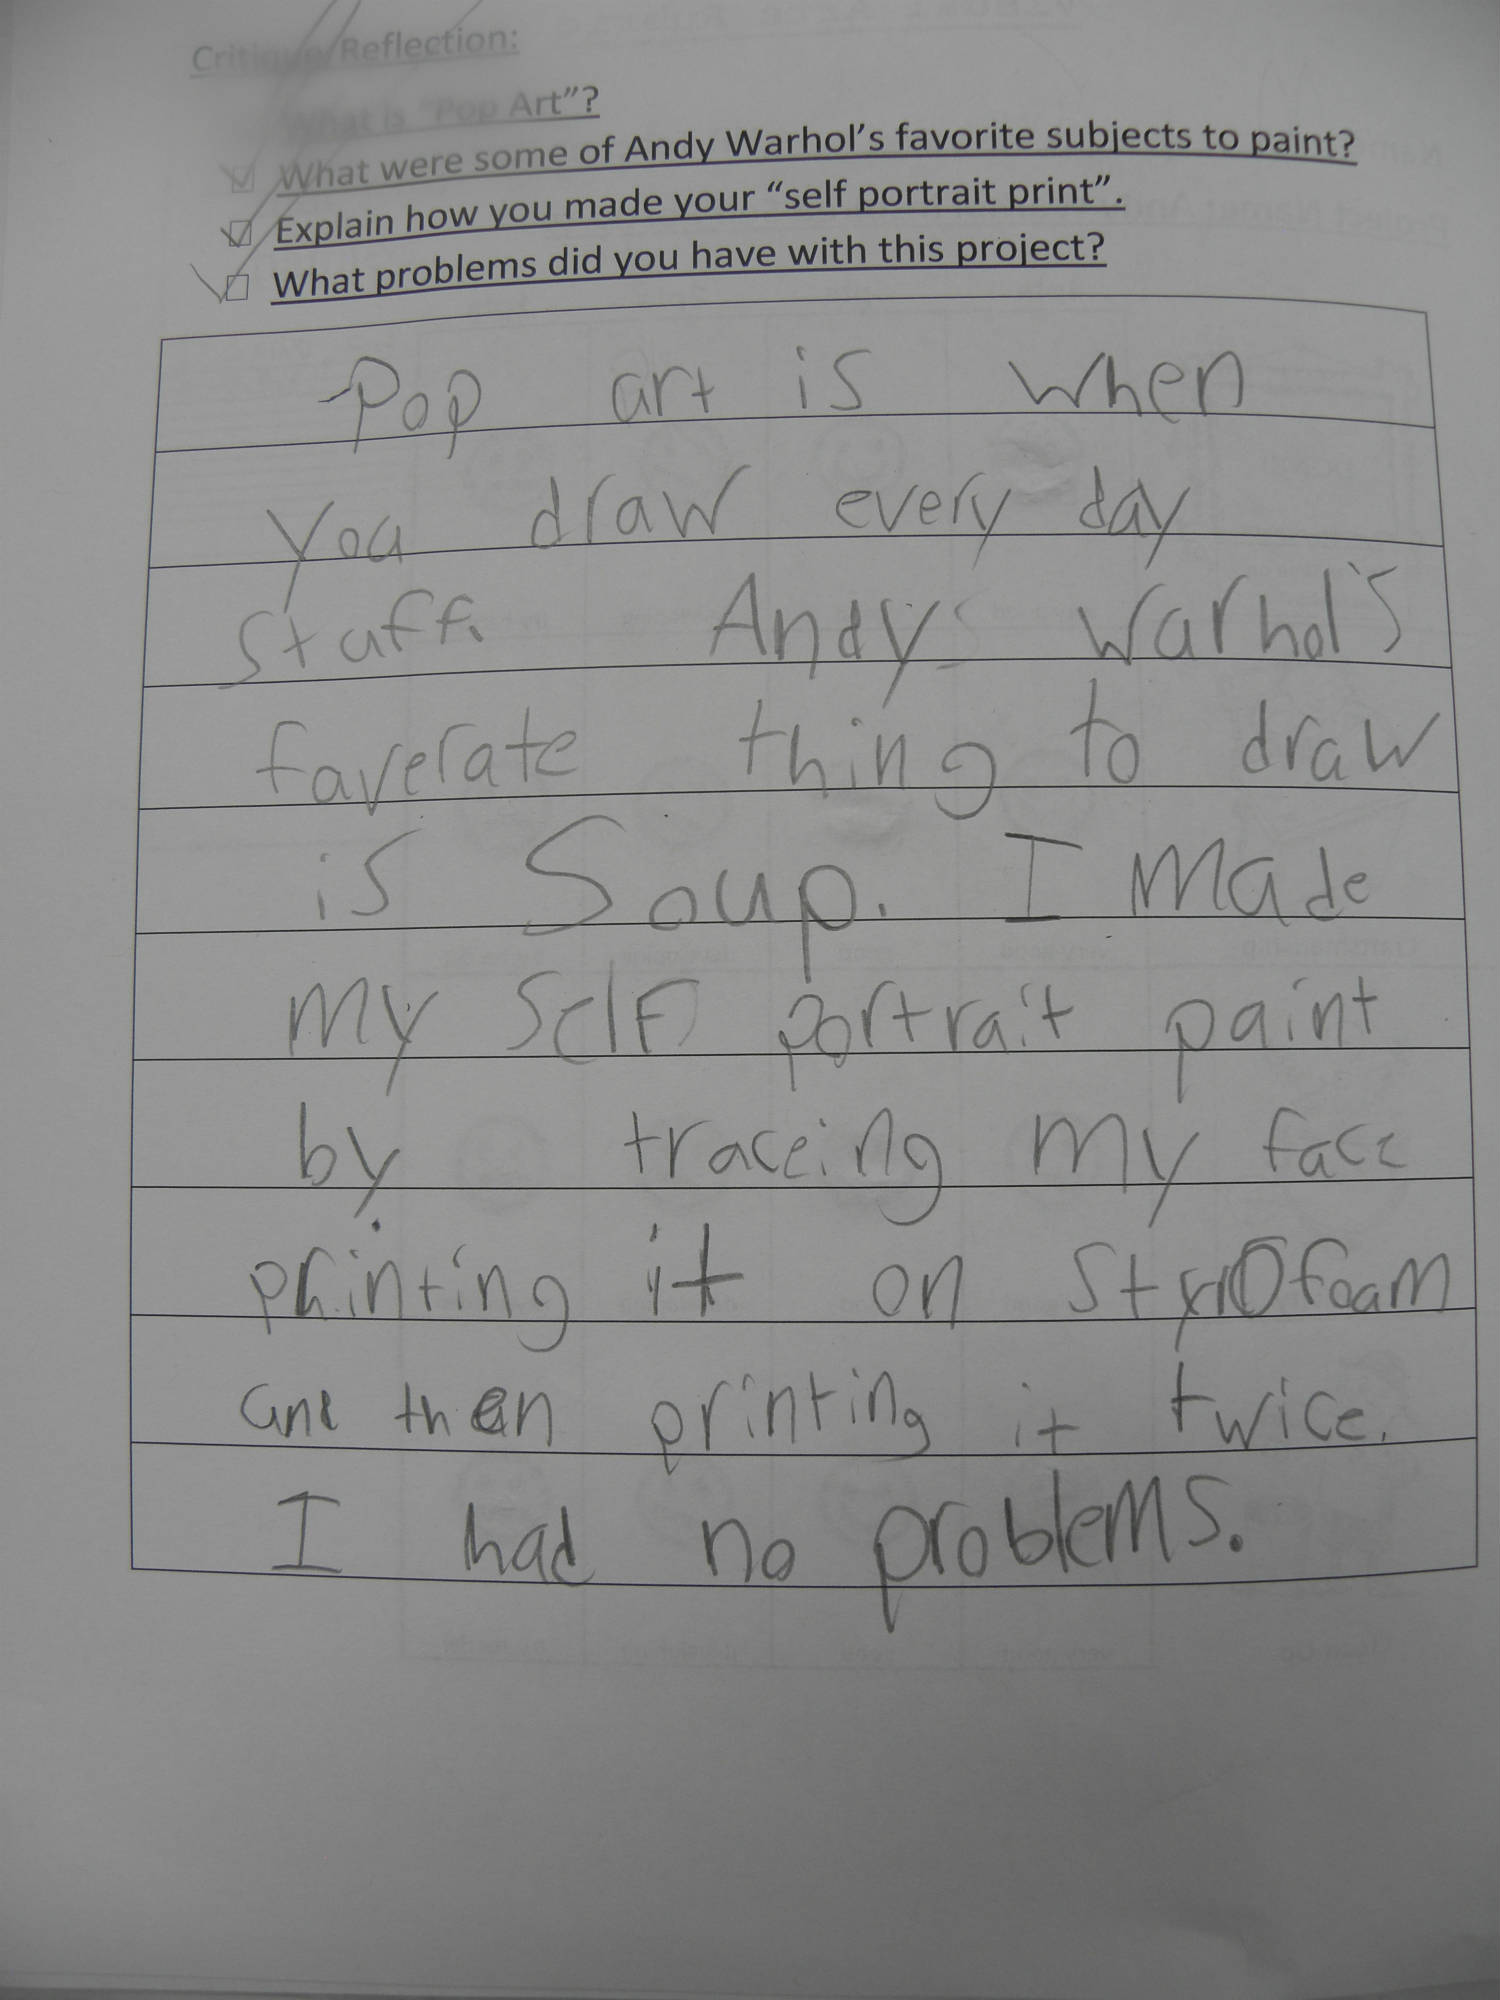 Critique/Reflection:
What is "Pop Art"?
What were some of Andy Warhol's favorite subjects to paint?
Explain how you made your "self portrait print".
What problems did you have with this project?
Pop art is when
you draw every day
stuff. Andy Warhol's
faverate thing to draw
is Soup. I made
my self portrait paint
by traceing my face
printing it on styrofoam
and then printing it twice.
I had no problems.